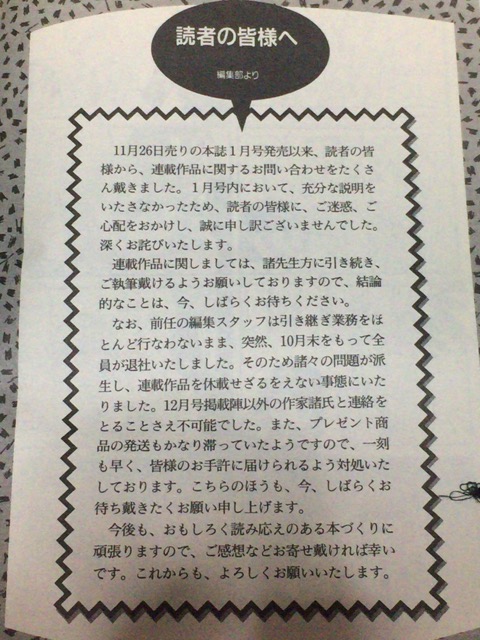 読者の皆様へ
編集部より
11月26日売りの本誌１月号発売以来、読者の皆
様から、連載作品に関するお問い合わせをたくさ
ん戴きました。１月号内において、充分な説明を
いたさなかったため、読者の皆様に、ご迷惑、ご
心配をおかけし、誠に申し訳ございませんでした。
深くお詫びいたします。
連載作品に関しましては、諸先生方に引き続き、
ご執筆戴けるようお願いしておりますので、結論
的なことは、今、しばらくお待ちください。
なお、前任の編集スタッフは引き継ぎ業務をほ
とんど行なわないまま、突然、10月末をもって全
員が退社いたしました。そのため諸々の問題が派
生し、連載作品を休載せざるをえない事態にいた
りました。12月号掲載陣以外の作家諸氏と連絡を
とることさえ不可能でした。また、プレゼント商
品の発送もかなり滞っていたようですので、一刻
も早く、皆様のお手許に届けられるよう対処いた
しております。こちらのほうも、今、しばらくお
待ち戴きたくお願い申し上げます。
今後も、おもしろく読み応えのある本づくりに
頑張りますので、ご感想などお寄せ戴ければ幸い
です。これからも、よろしくお願いいたします。